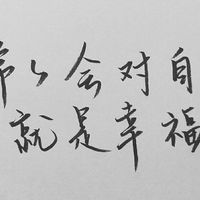 会对自
就是幸福